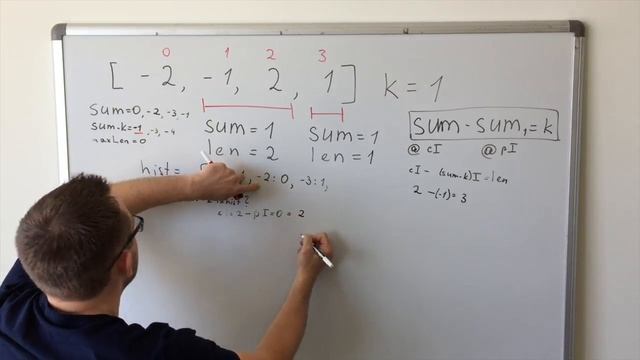 0 1 2 3
[ -2, -1, 2, 1 ] k = 1
sum=0, -2, -3, -1
sum-k=-1, -3, -4
maxLen=0
sum = 1
len = 2
sum = 1
len = 1
sum - sum₁ = k
@ cI @ pI
cI - (sum-k)I = len
2 -(-1) = 3
hist= -2:0, -3:1,
2 - pI=0 = 2